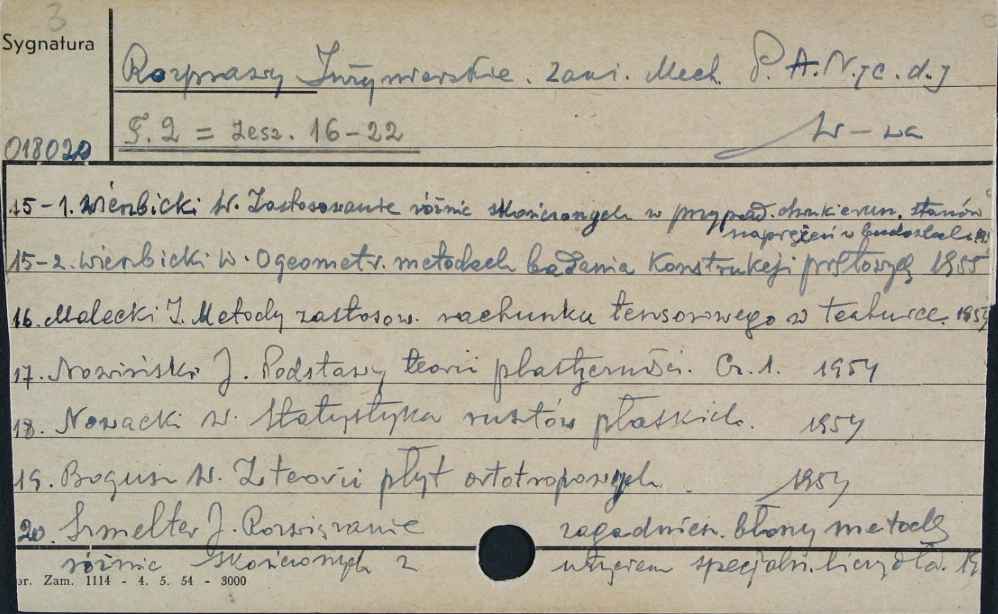 3
Sygnatura
Rozprawy Inżynierskie. Zakł. Mech. P.A.N. jc. d. j
T. 2 = zesz. 16-22 W-wa
018020
15-1. Wierzbicki W. Zastosowanie różnic skończonych w przypad. dwukierun. stanów
naprężeń w
15-2. Wierzbicki W. O geometr. metodach badania Konstrukcji prętowych 1955
16. Malecki I. Metody zastosow. rachunku tensorowego w technice. 1954
17. Nowiński J. Podstawy teorii plastyczności. Cz. 1. 1954
18. Nowacki W. Statystyka rusztów płaskich. 1954
19. Bogusz W. Z teorii płyt ortotropowych 1954
20. Szmelter J. Rozwiązanie zagadnien. błony metodą
różnic skończonych z użyciem specjaln. liczydła. 19
Dr. Zam. 1114 - 4. 5. 54 - 3000